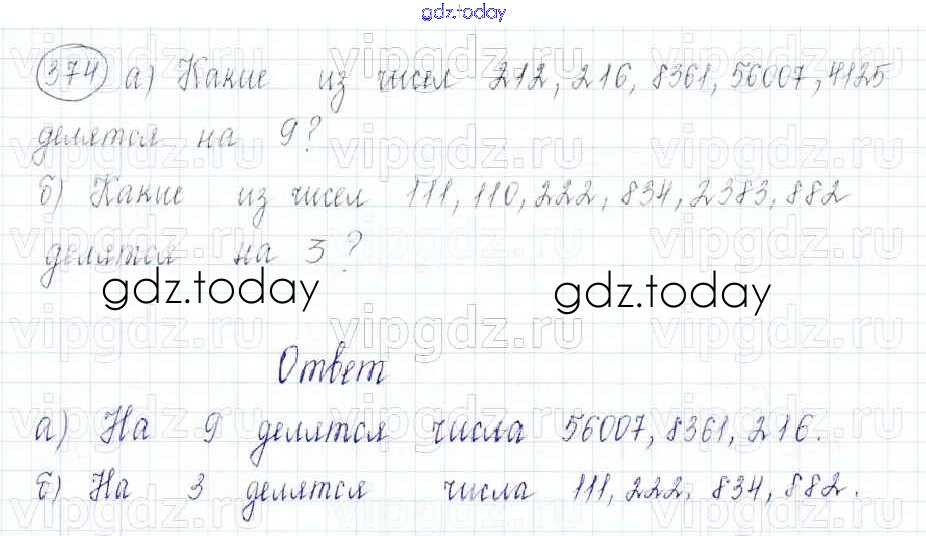 gdz.today
374 а) Какие из чисел 212, 216, 8361, 56007, 4125
делятся на 9?
б) Какие из чисел 111, 110, 222, 834, 2383, 882
делятся на 3?
gdz.today gdz.today
Ответ
а) На 9 делятся числа 56007, 8361, 216.
б) На 3 делятся числа 111, 222, 834, 882.
vipgdz.ru vipgdz.ru vipgdz.ru